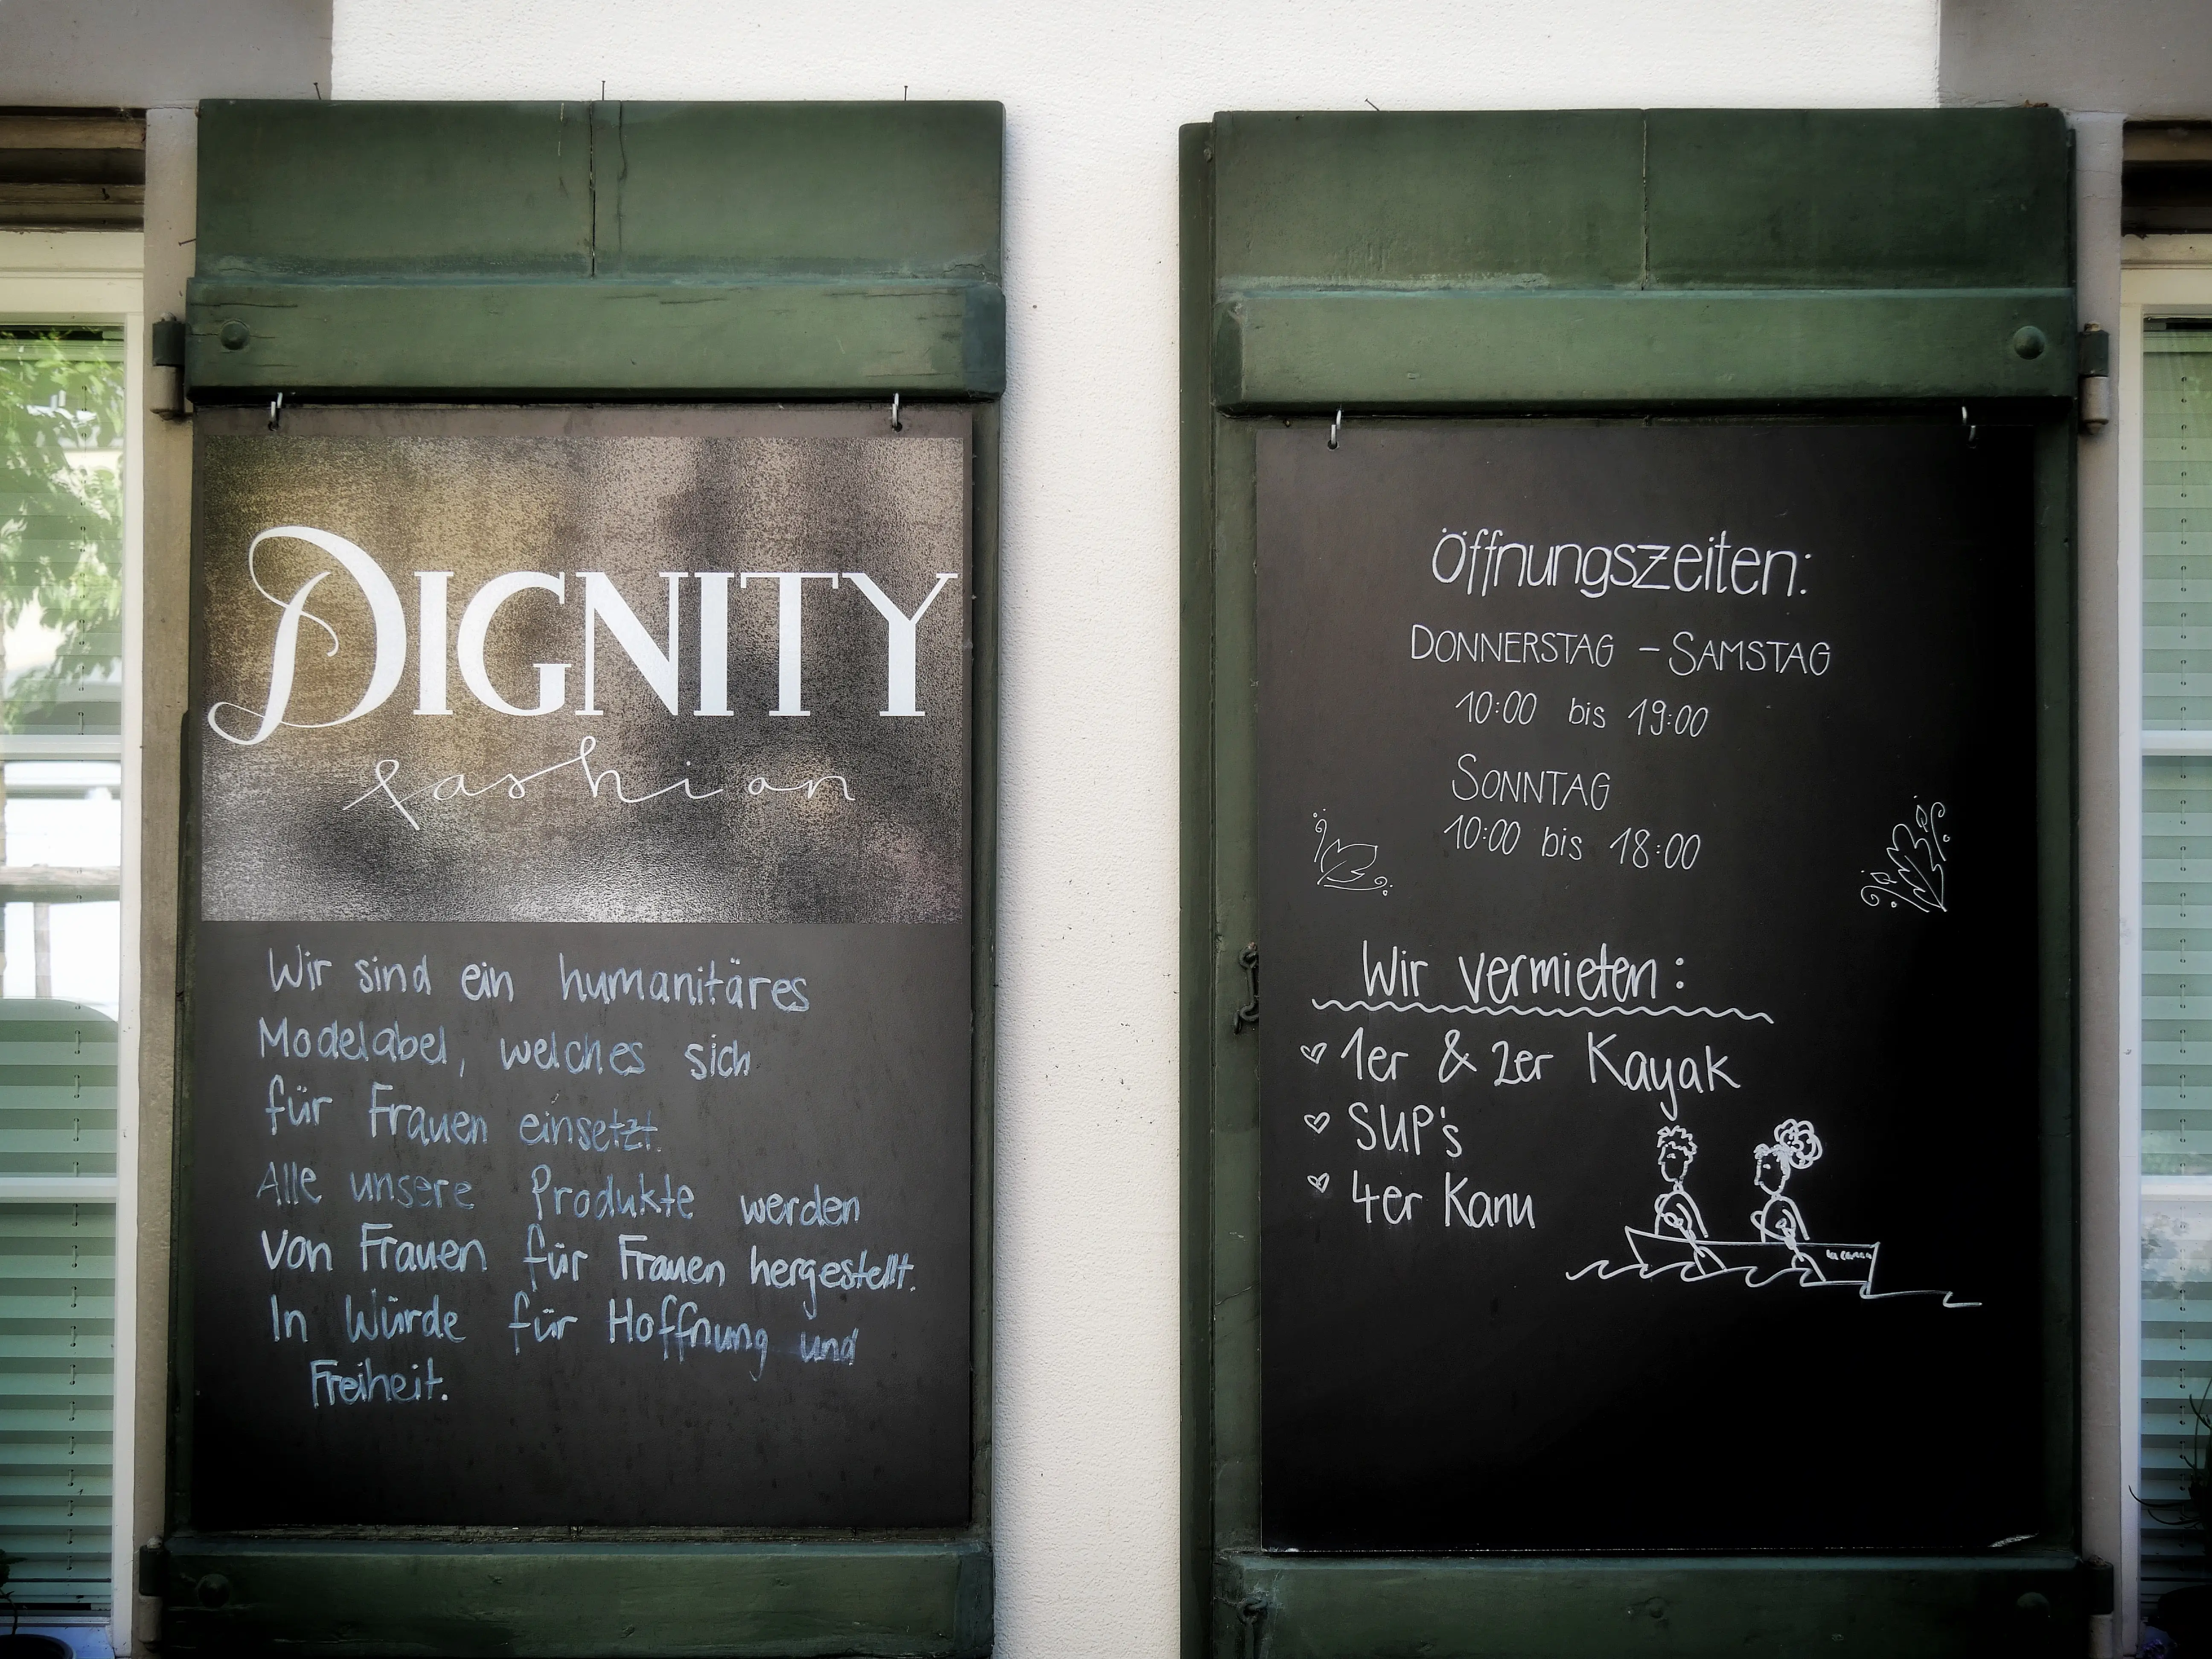 DIGNITY
fashion
Wir sind ein humanitäres
Modelabel, welches sich
für Frauen einsetzt.
Alle unsere Produkte werden
von Frauen für Frauen hergestellt.
In Würde für Hoffnung und
Freiheit.
Öffnungszeiten:
DONNERSTAG - SAMSTAG
10:00 bis 19:00
SONNTAG
10:00 bis 18:00
Wir vermieten:
1er & 2er Kayak
SUP's
4er Kanu